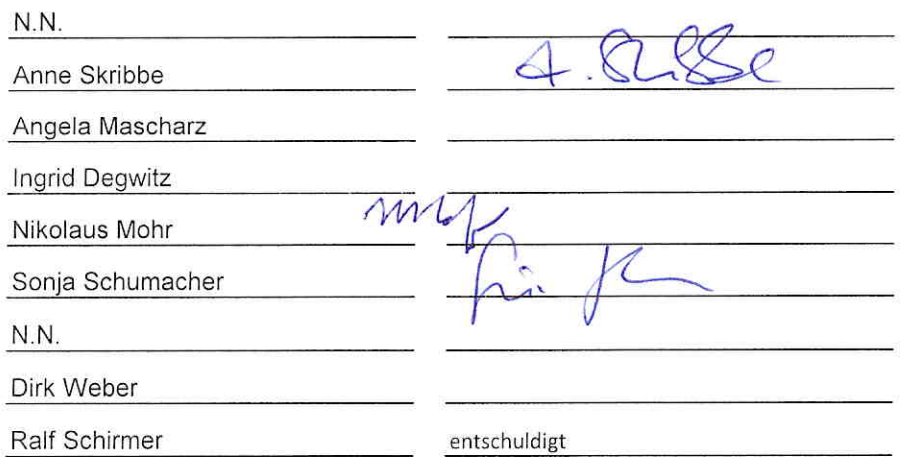 N.N.
Anne Skribbe A. Skribbe
Angela Mascharz
Ingrid Degwitz
Nikolaus Mohr
Sonja Schumacher
N.N.
Dirk Weber
Ralf Schirmer entschuldigt